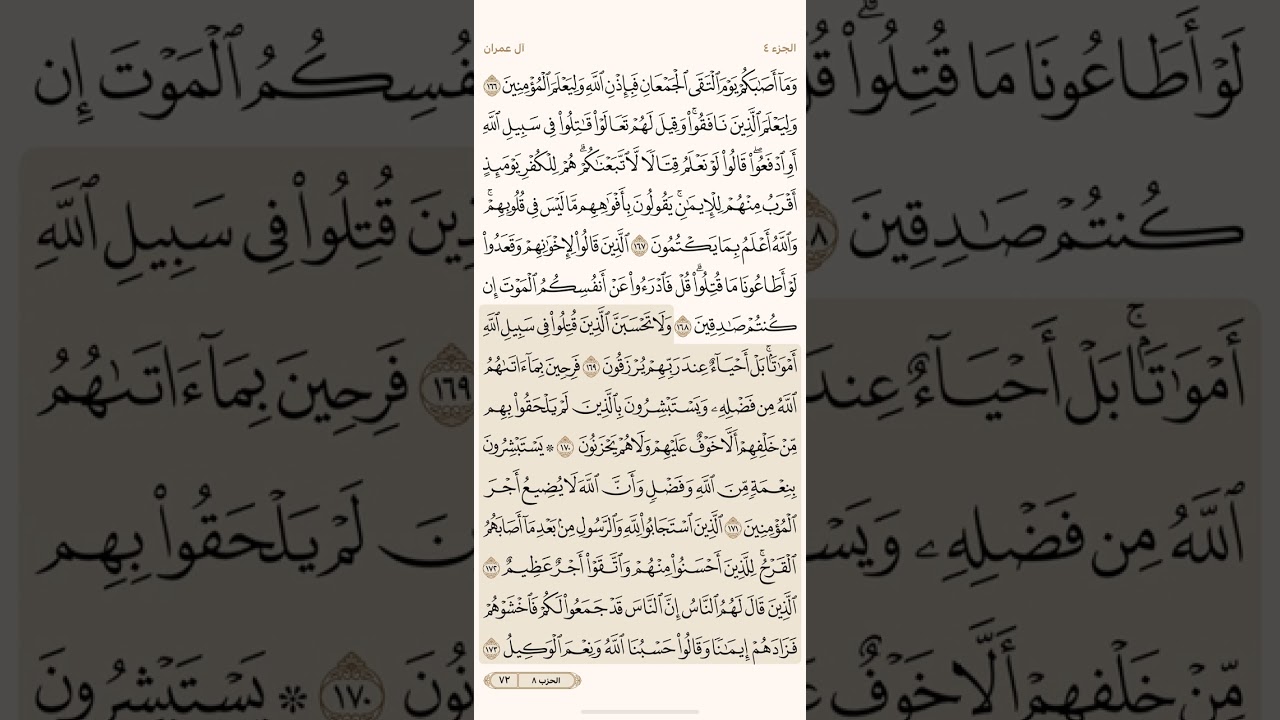 الجزء ٤
آل عمران
وَمَآ أَصَٰبَكُمْ يَوْمَ ٱلْتَقَى ٱلْجَمْعَانِ فَبِإِذْنِ ٱللَّهِ وَلِيَعْلَمَ ٱلْمُؤْمِنِينَ ١٦٦
وَلِيَعْلَمَ ٱلَّذِينَ نَافَقُوا۟ۚ وَقِيلَ لَهُمْ تَعَالَوْا۟ قَٰتِلُوا۟ فِى سَبِيلِ ٱللَّهِ
أَوِ ٱدْفَعُوا۟ۖ قَالُوا۟ لَوْ نَعْلَمُ قِتَالًا لَّٱتَّبَعْنَٰكُمْۗ هُمْ لِلْكُفْرِ يَوْمَئِذٍ
أَقْرَبُ مِنْهُمْ لِلْإِيمَٰنِۚ يَقُولُونَ بِأَفْوَٰهِهِم مَّا لَيْسَ فِى قُلُوبِهِمْۚ
وَٱللَّهُ أَعْلَمُ بِمَا يَكْتُمُونَ ١٦٧ ٱلَّذِينَ قَالُوا۟ لِإِخْوَٰنِهِمْ وَقَعَدُوا۟
لَوْ أَطَاعُونَا مَا قُتِلُوا۟ۗ قُلْ فَٱدْرَءُوا۟ عَنْ أَنفُسِكُمُ ٱلْمَوْتَ إِن
كُنتُمْ صَٰدِقِينَ ١٦٨ وَلَا تَحْسَبَنَّ ٱلَّذِينَ قُتِلُوا۟ فِى سَبِيلِ ٱللَّهِ
أَمْوَٰتًۢاۚ بَلْ أَحْيَآءٌ عِندَ رَبِّهِمْ يُرْزَقُونَ ١٦٩ فَرِحِينَ بِمَآ ءَاتَىٰهُمُ
ٱللَّهُ مِن فَضْلِهِۦ وَيَسْتَبْشِرُونَ بِٱلَّذِينَ لَمْ يَلْحَقُوا۟ بِهِم
مِّنْ خَلْفِهِمْ أَلَّا خَوْفٌ عَلَيْهِمْ وَلَا هُمْ يَحْزَنُونَ ١٧٠ ۞ يَسْتَبْشِرُونَ
بِنِعْمَةٍ مِّنَ ٱللَّهِ وَفَضْلٍ وَأَنَّ ٱللَّهَ لَا يُضِيعُ أَجْرَ
ٱلْمُؤْمِنِينَ ١٧١ ٱلَّذِينَ ٱسْتَجَابُوا۟ لِلَّهِ وَٱلرَّسُولِ مِنۢ بَعْدِ مَآ أَصَابَهُمُ
ٱلْقَرْحُۚ لِلَّذِينَ أَحْسَنُوا۟ مِنْهُمْ وَٱتَّقَوْا۟ أَجْرٌ عَظِيمٌ ١٧٢
ٱلَّذِينَ قَالَ لَهُمُ ٱلنَّاسُ إِنَّ ٱلنَّاسَ قَدْ جَمَعُوا۟ لَكُمْ فَٱخْشَوْهُمْ
فَزَادَهُمْ إِيمَٰنًا وَقَالُوا۟ حَسْبُنَا ٱللَّهُ وَنِعْمَ ٱلْوَكِيلُ ١٧٣
الحزب ٨ ٧٢